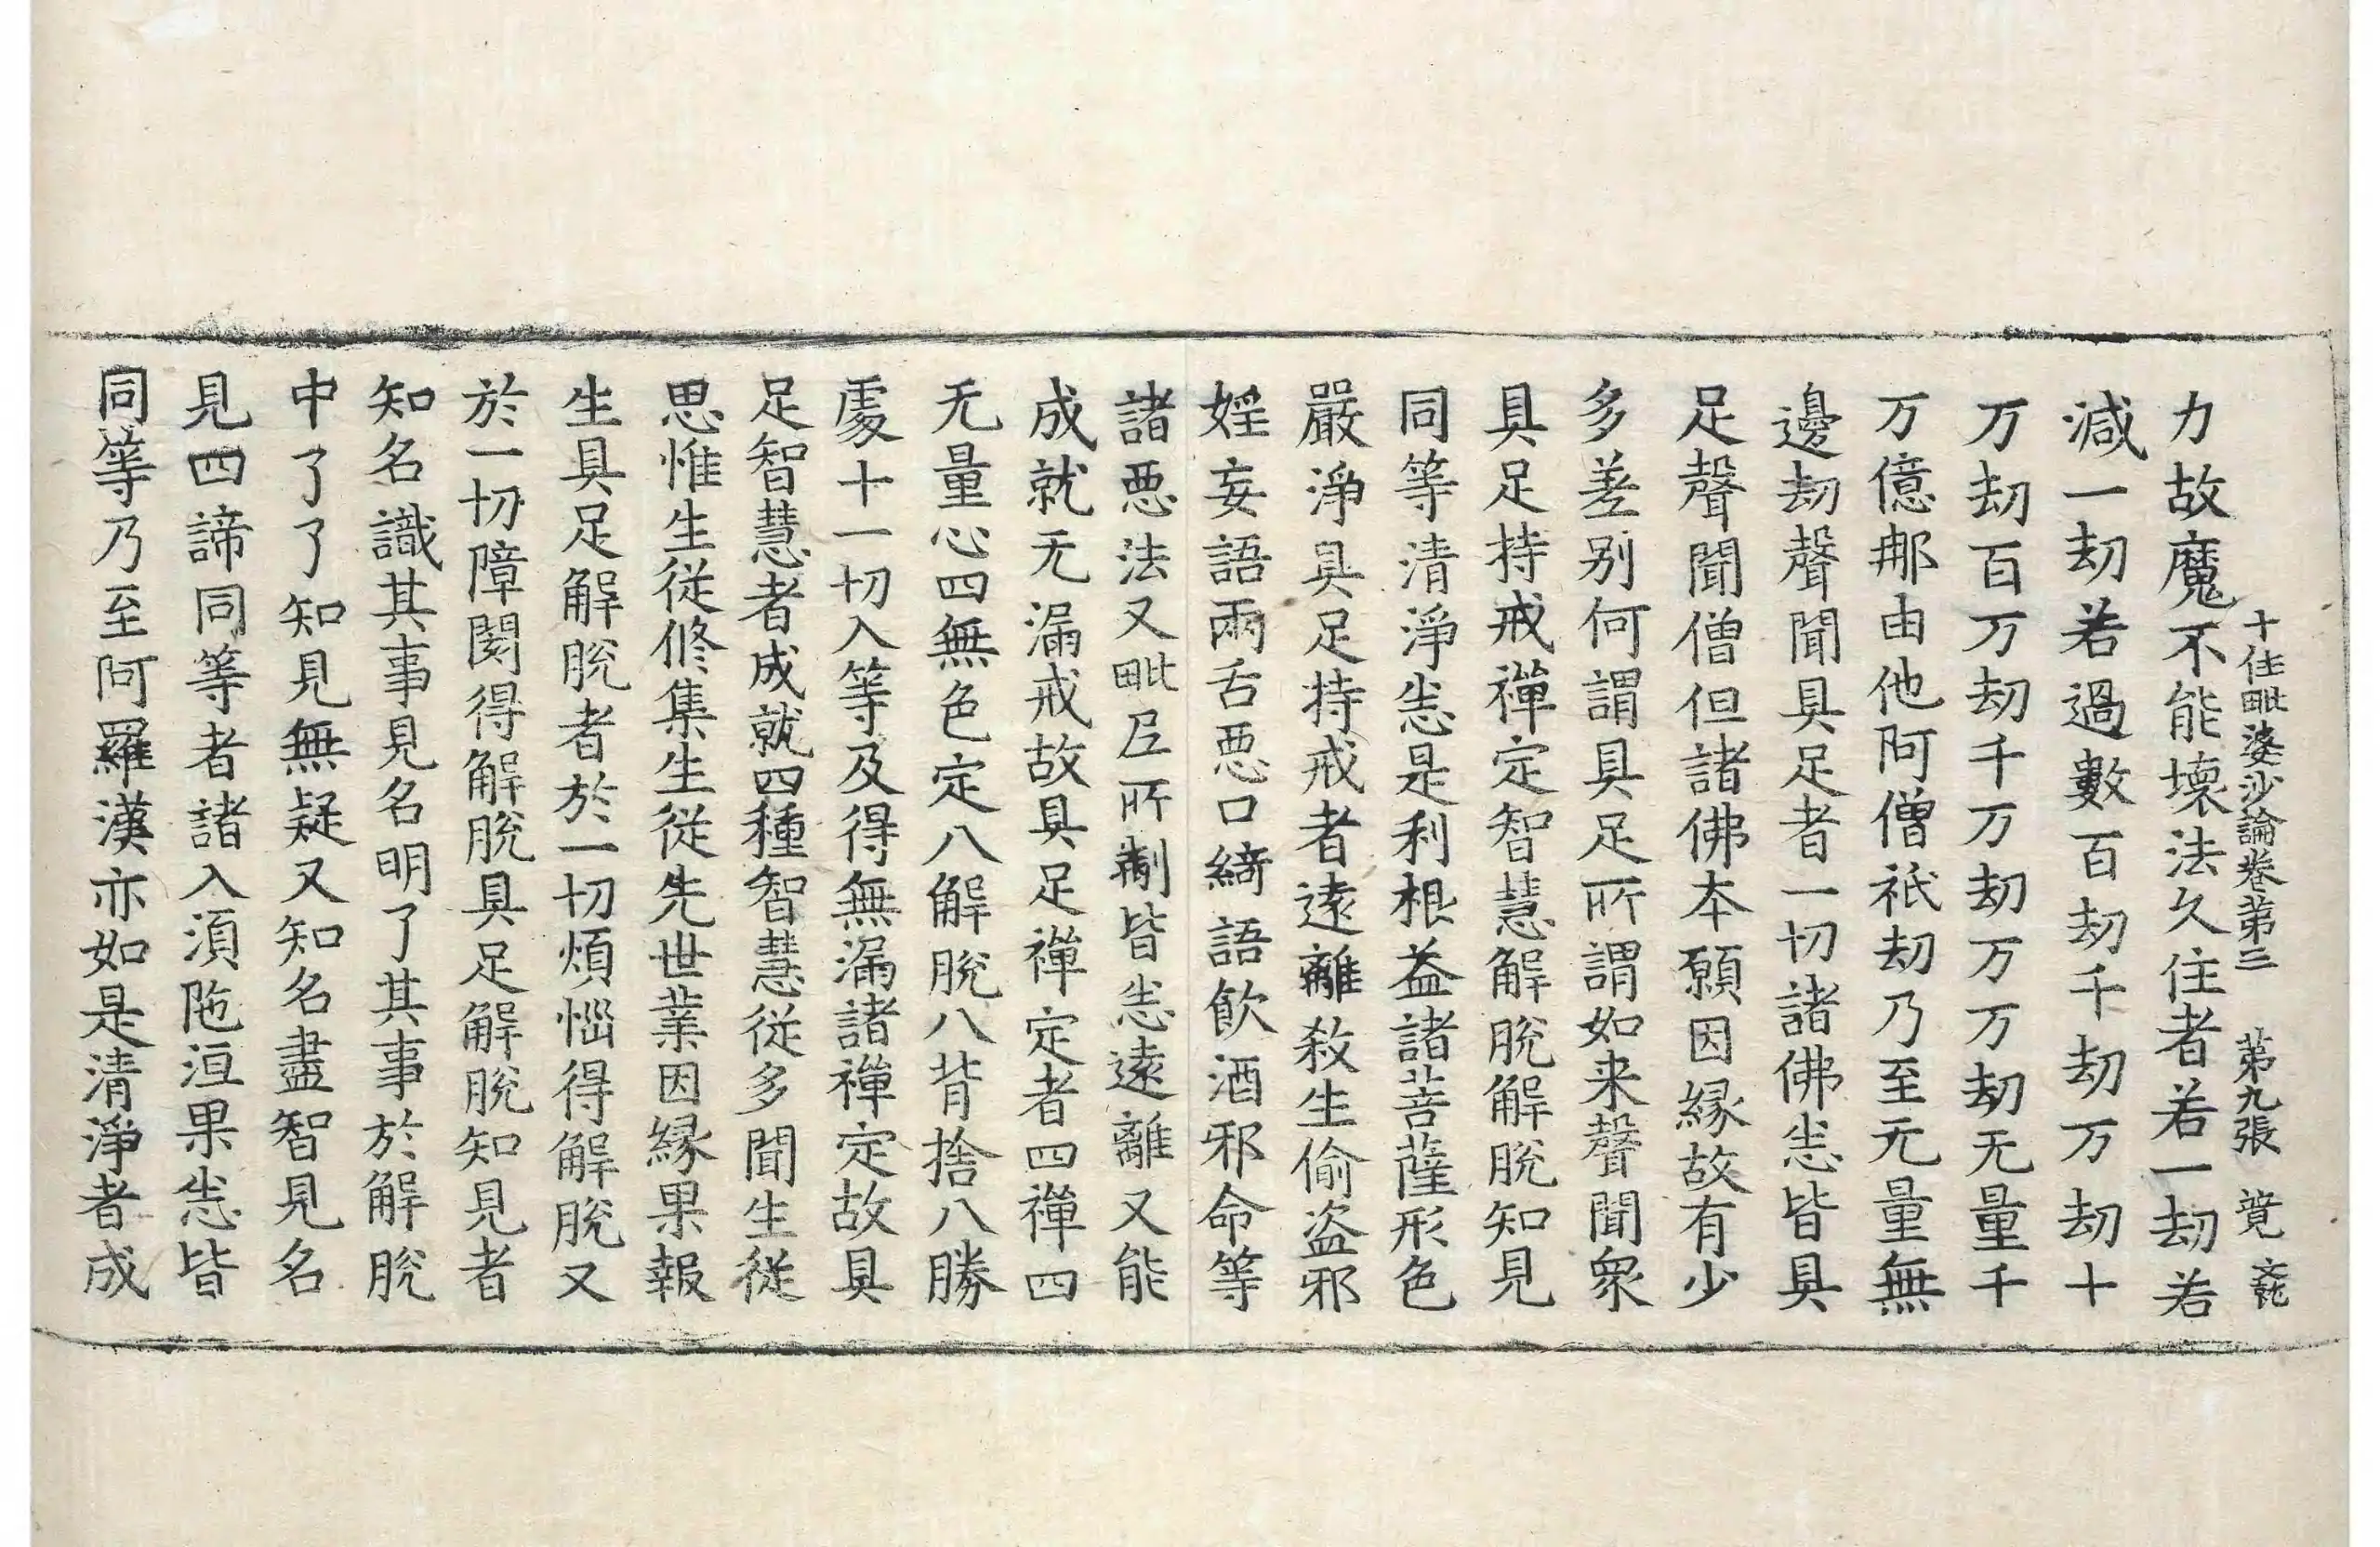 十住毗婆沙論卷第三 第九張 覚
力故魔不能壞法久住者若一劫若
減一劫若過數百劫千劫万劫十
万劫百万劫千万劫万万劫无量千
万億那由他阿僧祇劫乃至无量無
邊劫聲聞具足者一切諸佛悉皆具
足聲聞僧但諸佛本願因縁故有少
多差别何謂具足所謂如来聲聞衆
具足持戒禪定智慧解脫解脫知見
同等清淨悉是利根益諸菩薩形色
嚴淨具足持戒者遠離殺生偷盗邪
婬妄語兩舌惡口綺語飲酒邪命等
諸惡法又毗尼所制皆悉遠離又能
成就无漏戒故具足禪定者四禪四
无量心四無色定八解脫八背捨八勝
處十一切入等及得無漏諸禪定故具
足智慧者成就四種智慧從多聞生從
思惟生從修集生從先世業因縁果報
生具足解脫者於一切煩惱得解脫又
於一切障閡得解脫具足解脫知見者
知名識其事見名明了其事於解脫
中了了知見無疑又知名盡智見名
見四諦同等者諸入湏陁洹果悉皆
同等乃至阿羅漢亦如是清淨者成